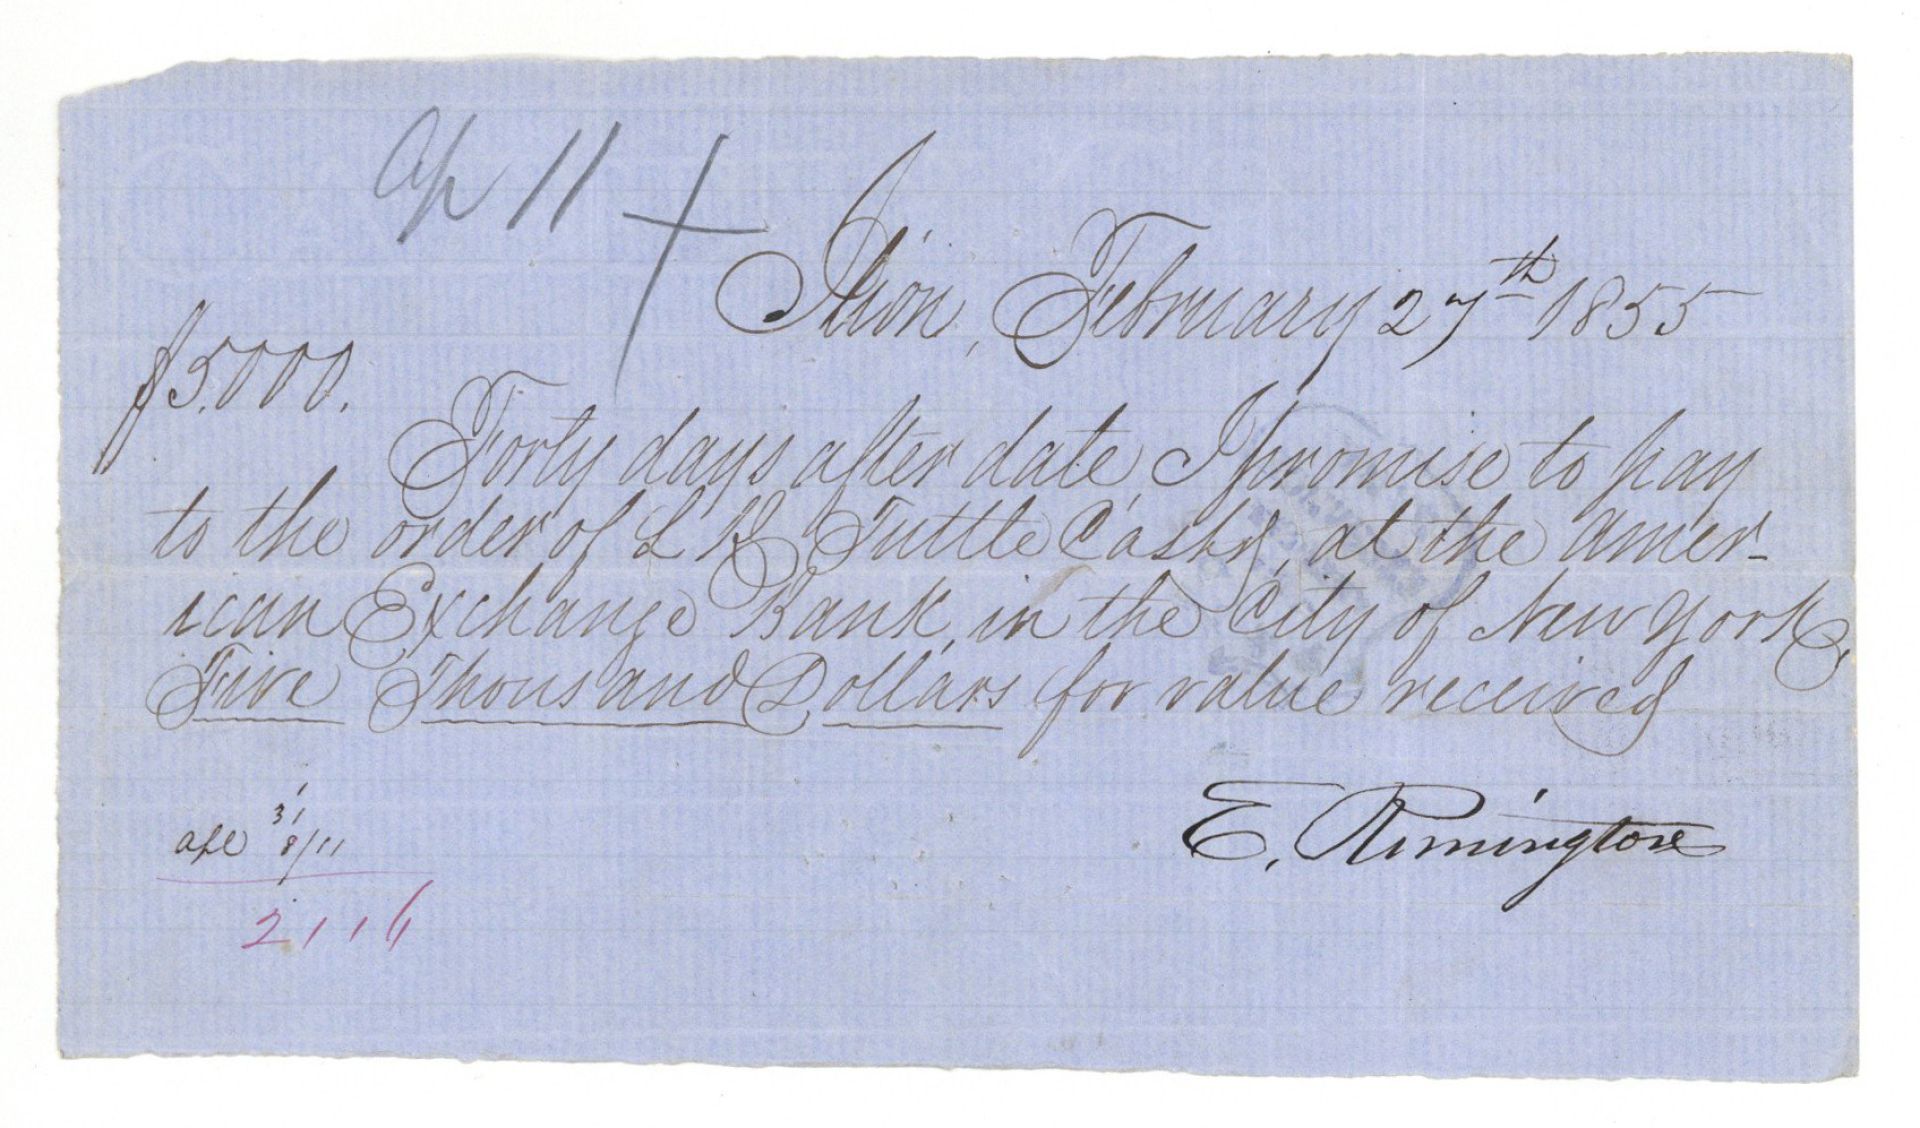 Ap 11
Ilion, February 27th 1855
$5.000.
Forty days after date, I promise to pay
to the order of L B Tuttle Cashr, at the Amer-
ican Exchange Bank, in the City of New York,
Five Thousand Dollars for value received
E. Remington
31
apl 8/11
2116